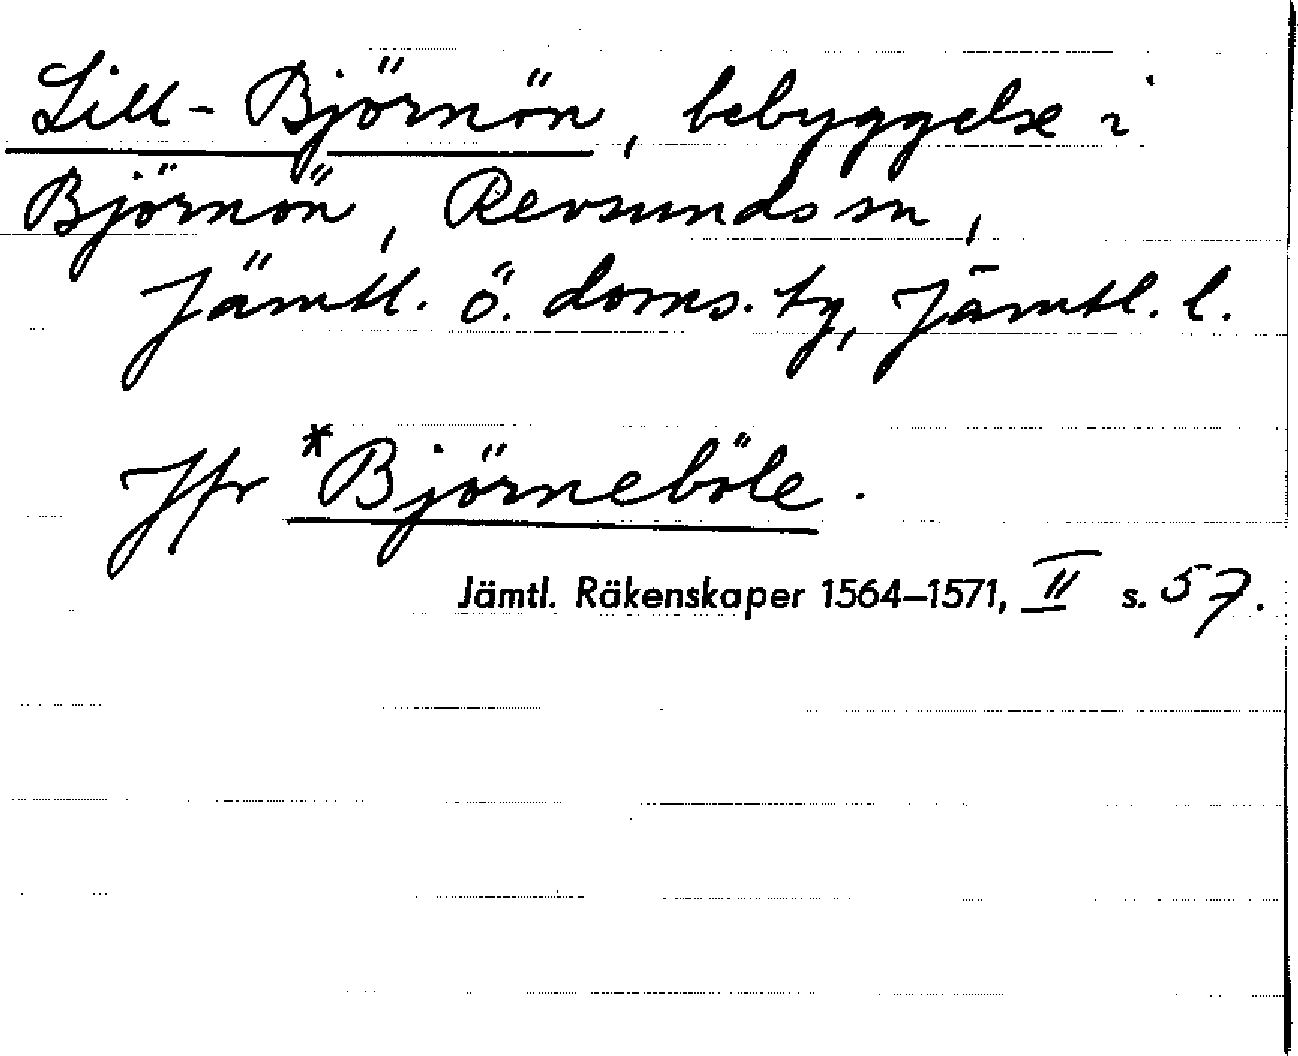 Lill-Björnön, bebyggelse i
Björnön, Revsunds sn,
Jämtl. ö. doms. tg, Jämtl. l.
Jfr *Björneböle.
Jämtl. Räkenskaper 1564–1571, II s. 57.